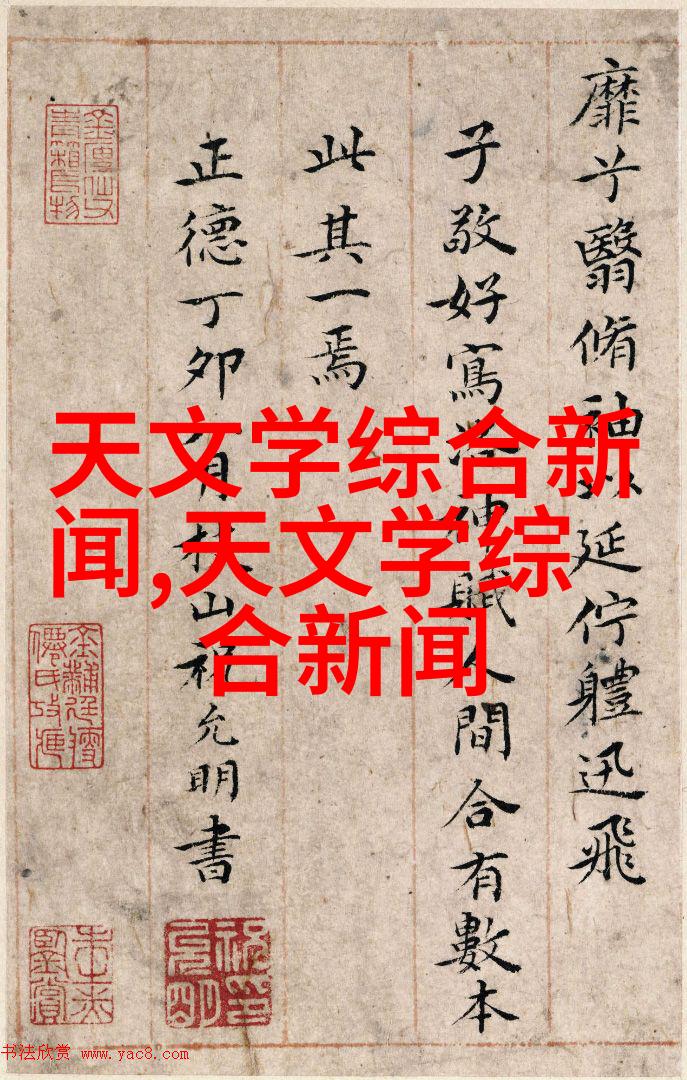 靡兮翳脩袖以延佇體迅飛
子敬好寫洛神賦人間合有數本
此其一焉
正德丁卯八月枝山祝允明書
天文学综合新
闻,天文学综
合新闻
书法欣赏 www.yac8.com